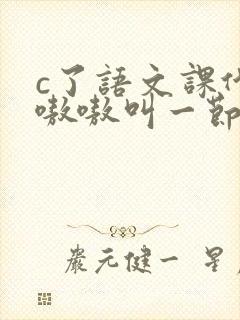 c了語文課代
嗷嗷叫一節
嚴元健一 星